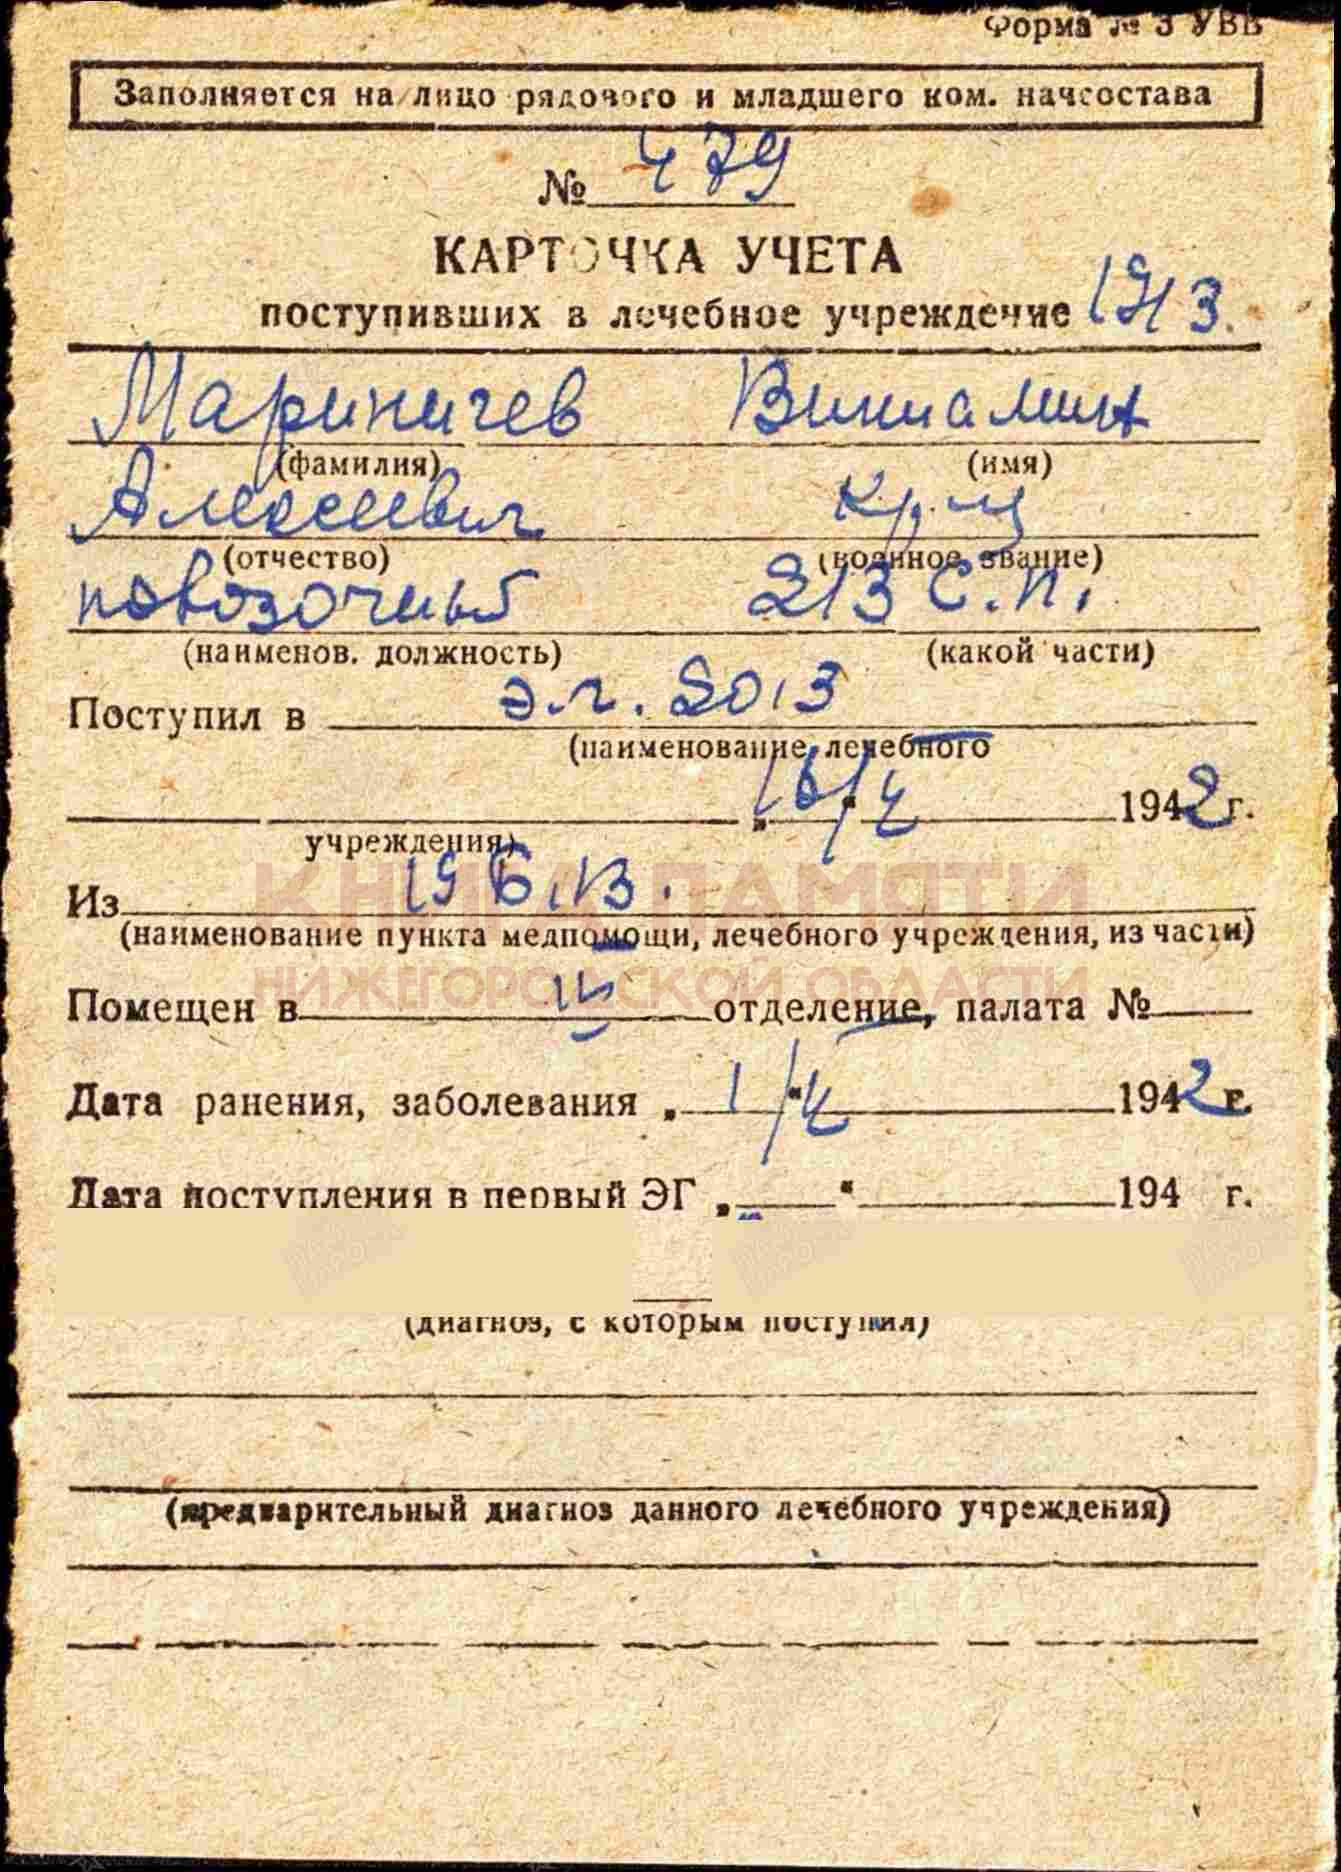 Форма № 3 УВВ
Заполняется на лицо рядового и младшего ком. начсостава
№ 479
КАРТОЧКА УЧЕТА
поступивших в лечебное учреждение 1913.
Мариничев Виниамин
(фамилия) (имя)
Алексеевич кр-ц
(отчество) (военное звание)
повозочный 213 с.п.
(наименов. должность) (какой части)
Поступил в э.г. 2013
(наименование лечебного
учреждения) „16/4“ 1942 г.
Из
(наименование пункта медпомощи, лечебного учреждения, из части)
КНИГА ПАМЯТИ
НИЖЕГОРОДСКОЙ ОБЛАСТИ
Помещен в отделение, палата №
Дата ранения, заболевания „1/4“ 1942 г.
Дата поступления в первый ЭГ „ “ 194 г.
(диагноз, с которым поступил)
(предварительный диагноз данного лечебного учреждения)